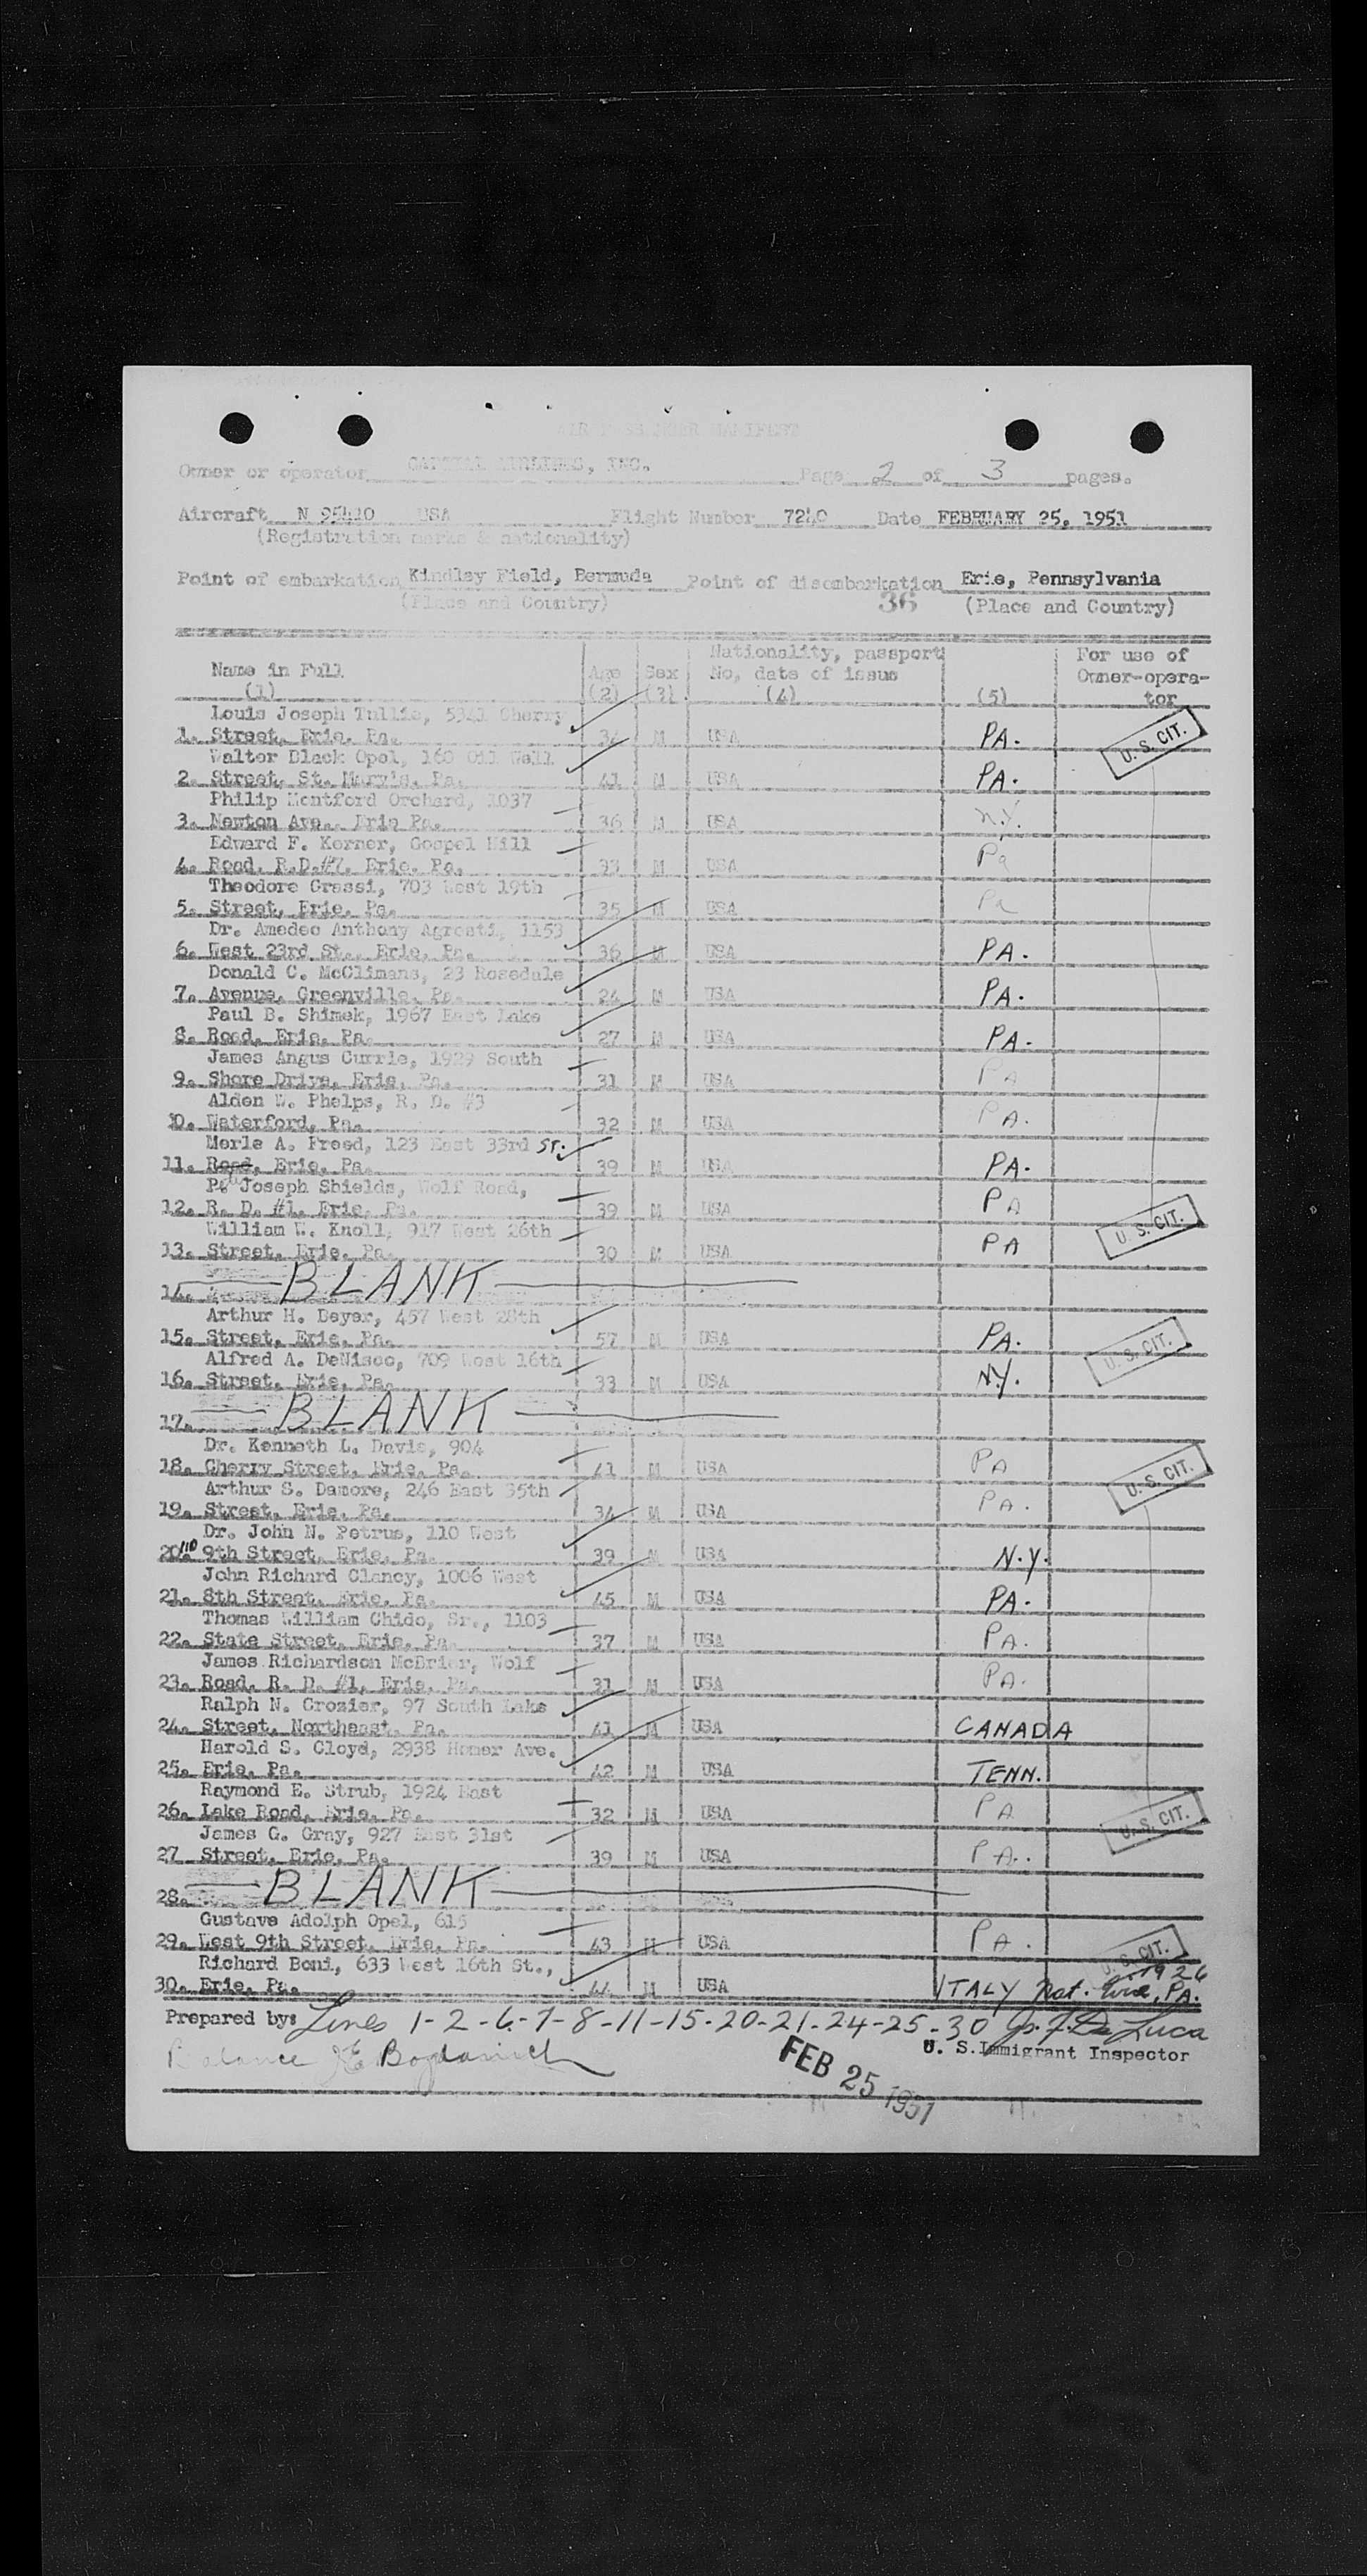 AIR PASSENGER MANIFEST
Owner or operator CAPITAL AIRLINES, INC. Page 2 of 3 pages.
Aircraft N 95420 USA Flight Number 7240 Date FEBRUARY 25, 1951
(Registration marks & nationality)
Point of embarkation Kindley Field, Bermuda Point of disembarkation Erie, Pennsylvania
(Place and Country) 36 (Place and Country)
Nationality, passport For use of
Name in Full Age Sex No, date of issue Owner-opera-
(1) (2) (3) (4) (5) tor
Louis Joseph Tullio, 5341 Cherry
1. Street, Erie, Pa. 34 M USA PA. U. S. CIT.
Walter Black Opel, 160 Oil Well
2. Street, St. Mary's, Pa. 41 M USA PA.
Philip Montford Orchard, 1037
3. Newton Ave., Erie Pa. 36 M USA N.Y.
Edward F. Korner, Gospel Hill
4. Road, R.D.#7, Erie, Pa. 33 M USA Pa
Theodore Grassi, 703 West 19th
5. Street, Erie, Pa. 35 M USA Pa
Dr. Amedeo Anthony Agresti, 1153
6. West 23rd St., Erie, Pa. 36 M USA PA.
Donald C. McClimans, 23 Rosedale
7. Avenue, Greenville, Pa. 24 M USA PA.
Paul B. Shimek, 1967 East Lake
8. Road, Erie, Pa. 27 M USA PA.
James Angus Currie, 1929 South
9. Shore Drive, Erie, Pa. 31 M USA PA
Alden W. Phelps, R. D. #3
10. Waterford, Pa. 32 M USA PA.
Merle A. Freed, 123 East 33rd ST.
11. Road, Erie, Pa. 39 M USA PA.
Joseph Shields, Wolf Road,
12. R. D. #1, Erie, Pa. 39 M USA PA U. S. CIT.
William W. Knoll, 917 West 26th
13. Street, Erie, Pa. 30 M USA PA
14. BLANK
Arthur H. Beyer, 457 West 28th
15. Street, Erie, Pa. 57 M USA PA. U. S. CIT.
Alfred A. DeNisco, 709 West 16th
16. Street, Erie, Pa. 33 M USA N.Y.
17. BLANK
Dr. Kenneth L. Davis, 904
18. Cherry Street, Erie, Pa. 41 M USA PA U. S. CIT.
Arthur S. Damore, 246 East 35th
19. Street, Erie, Pa. 34 M USA PA.
Dr. John N. Petrus, 110 West
20. 110 9th Street, Erie, Pa. 39 M USA N.Y.
John Richard Clancy, 1006 West
21. 8th Street, Erie, Pa. 45 M USA PA.
Thomas William Chido, Sr., 1103
22. State Street, Erie, Pa. 37 M USA PA.
James Richardson McBrier, Wolf
23. Road, R. D. #1, Erie, Pa. 31 M USA PA.
Ralph N. Crozier, 97 South Lake
24. Street, Northeast, Pa. 41 M USA CANADA
Harold S. Cloyd, 2938 Homer Ave.
25. Erie, Pa. 42 M USA TENN.
Raymond E. Strub, 1924 East
26. Lake Road, Erie, Pa. 32 M USA PA U. S. CIT.
James G. Gray, 927 East 31st
27 Street, Erie, Pa. 39 M USA PA.
28. BLANK
Gustave Adolph Opel, 615
29. West 9th Street, Erie, Pa. 43 M USA PA. U. S. CIT.
Richard Boni, 633 West 16th St., 1926
30. Erie, Pa. 44 M USA ITALY Nat. Erie, PA.
Prepared by: Lines 1-2-6-7-8-11-15-20-21-24-25-30 De Luca
Balance J E Bogdanich U. S. Immigrant Inspector
FEB 25 1951